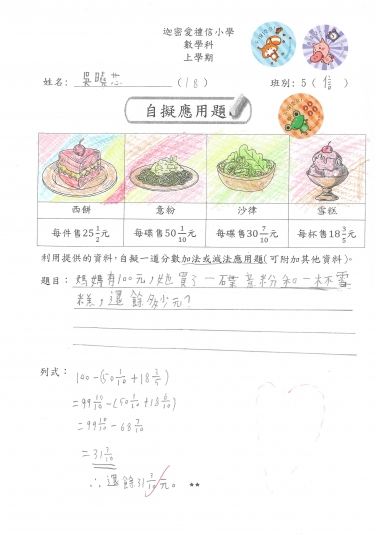 迦密愛禮信小學
數學科
上學期
姓名： 吳曉悠 （18） 班別：5（信）
自擬應用題
西餅 意粉 沙律 雪糕
每件售25 1/2元 每碟售50 1/10元 每碟售30 7/10元 每杯售18 3/5元
利用提供的資料，自擬一道分數加法或減法應用題（可附加其他資料）。
題目： 媽媽有100元，她買了一碟意粉和一杯雪
糕，還餘多少元？
列式：
100－(50 1/10＋18 3/5)
＝99 10/10－(50 1/10＋18 6/10)
＝99 10/10－68 7/10
＝31 3/10
∴還餘31 3/10元。 ★★